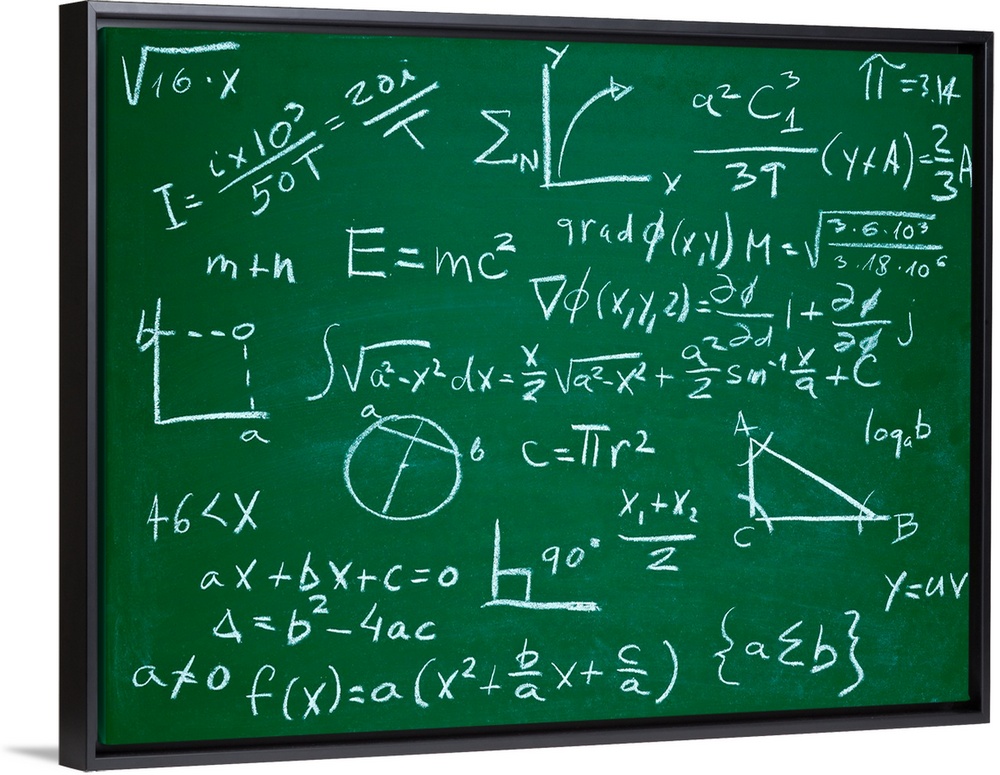 √16·x
I = i×10³/50T = 20i/T
Σ_N
Y
X
a²C₁³/39
π=3.14
(Y+A)=2/3A
m+n
E=mc²
grad ϕ(x,y)
M=√(3·6·10³/3·18·10⁶)
∇ϕ(x,y,z)=∂ϕ/∂d i+∂ϕ/∂ϕ j
b
a
∫√a²-x² dx = x/2 √a²-x² + a²/2 sin⁻¹ x/a + C
a
b
c=πr²
A
C
B
logₐb
46<X
x₁+x₂/2
90°
ax+bx+c=0
Δ=b²-4ac
y=uv
a≠0
f(x)=a(x²+b/a x+c/a)
{a≤b}